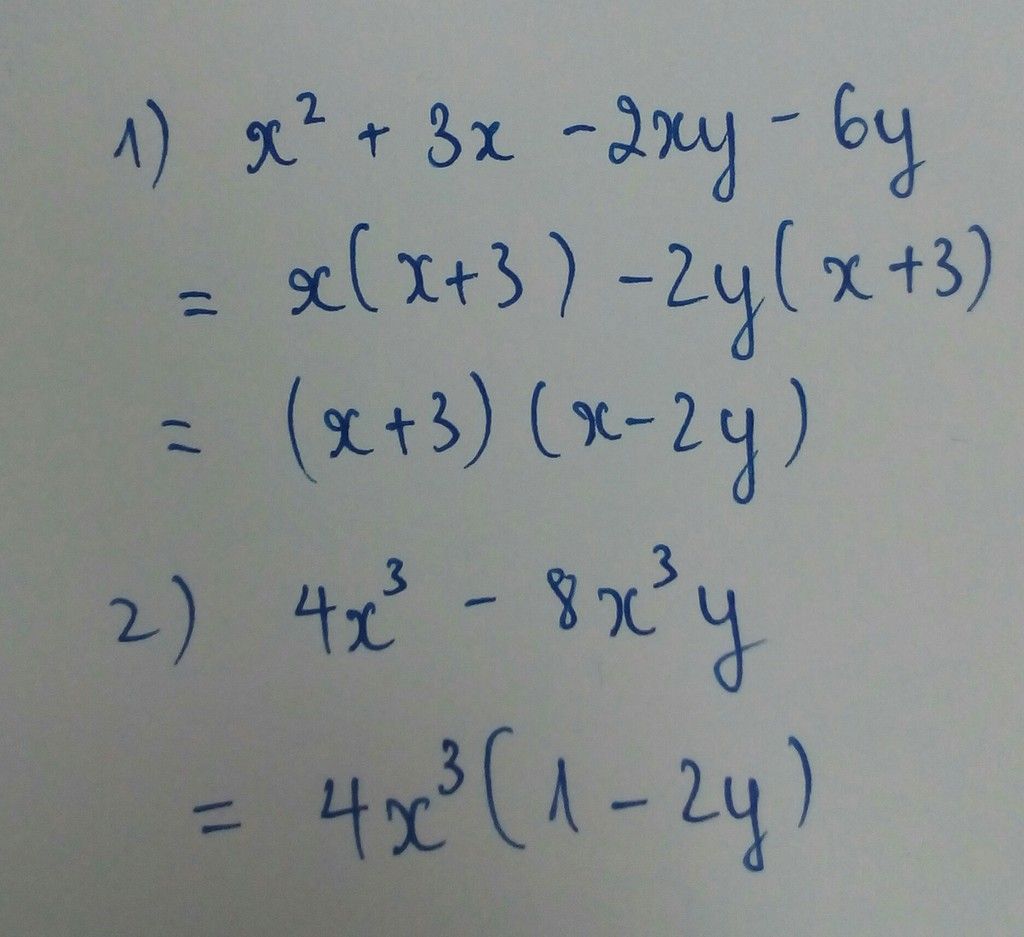 1) x² + 3x - 2xy - 6y
= x(x+3) - 2y(x+3)
= (x+3)(x-2y)
2) 4x³ - 8x³y
= 4x³(1 - 2y)